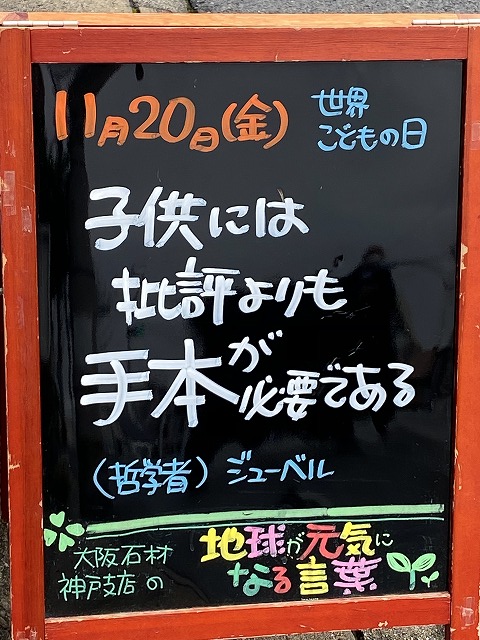 11月20日(金)
世界
こどもの日
子供には
批評よりも
手本が
必要である
(哲学者) ジューベル
大阪石材
神戸支店の
地球が元気に
なる言葉